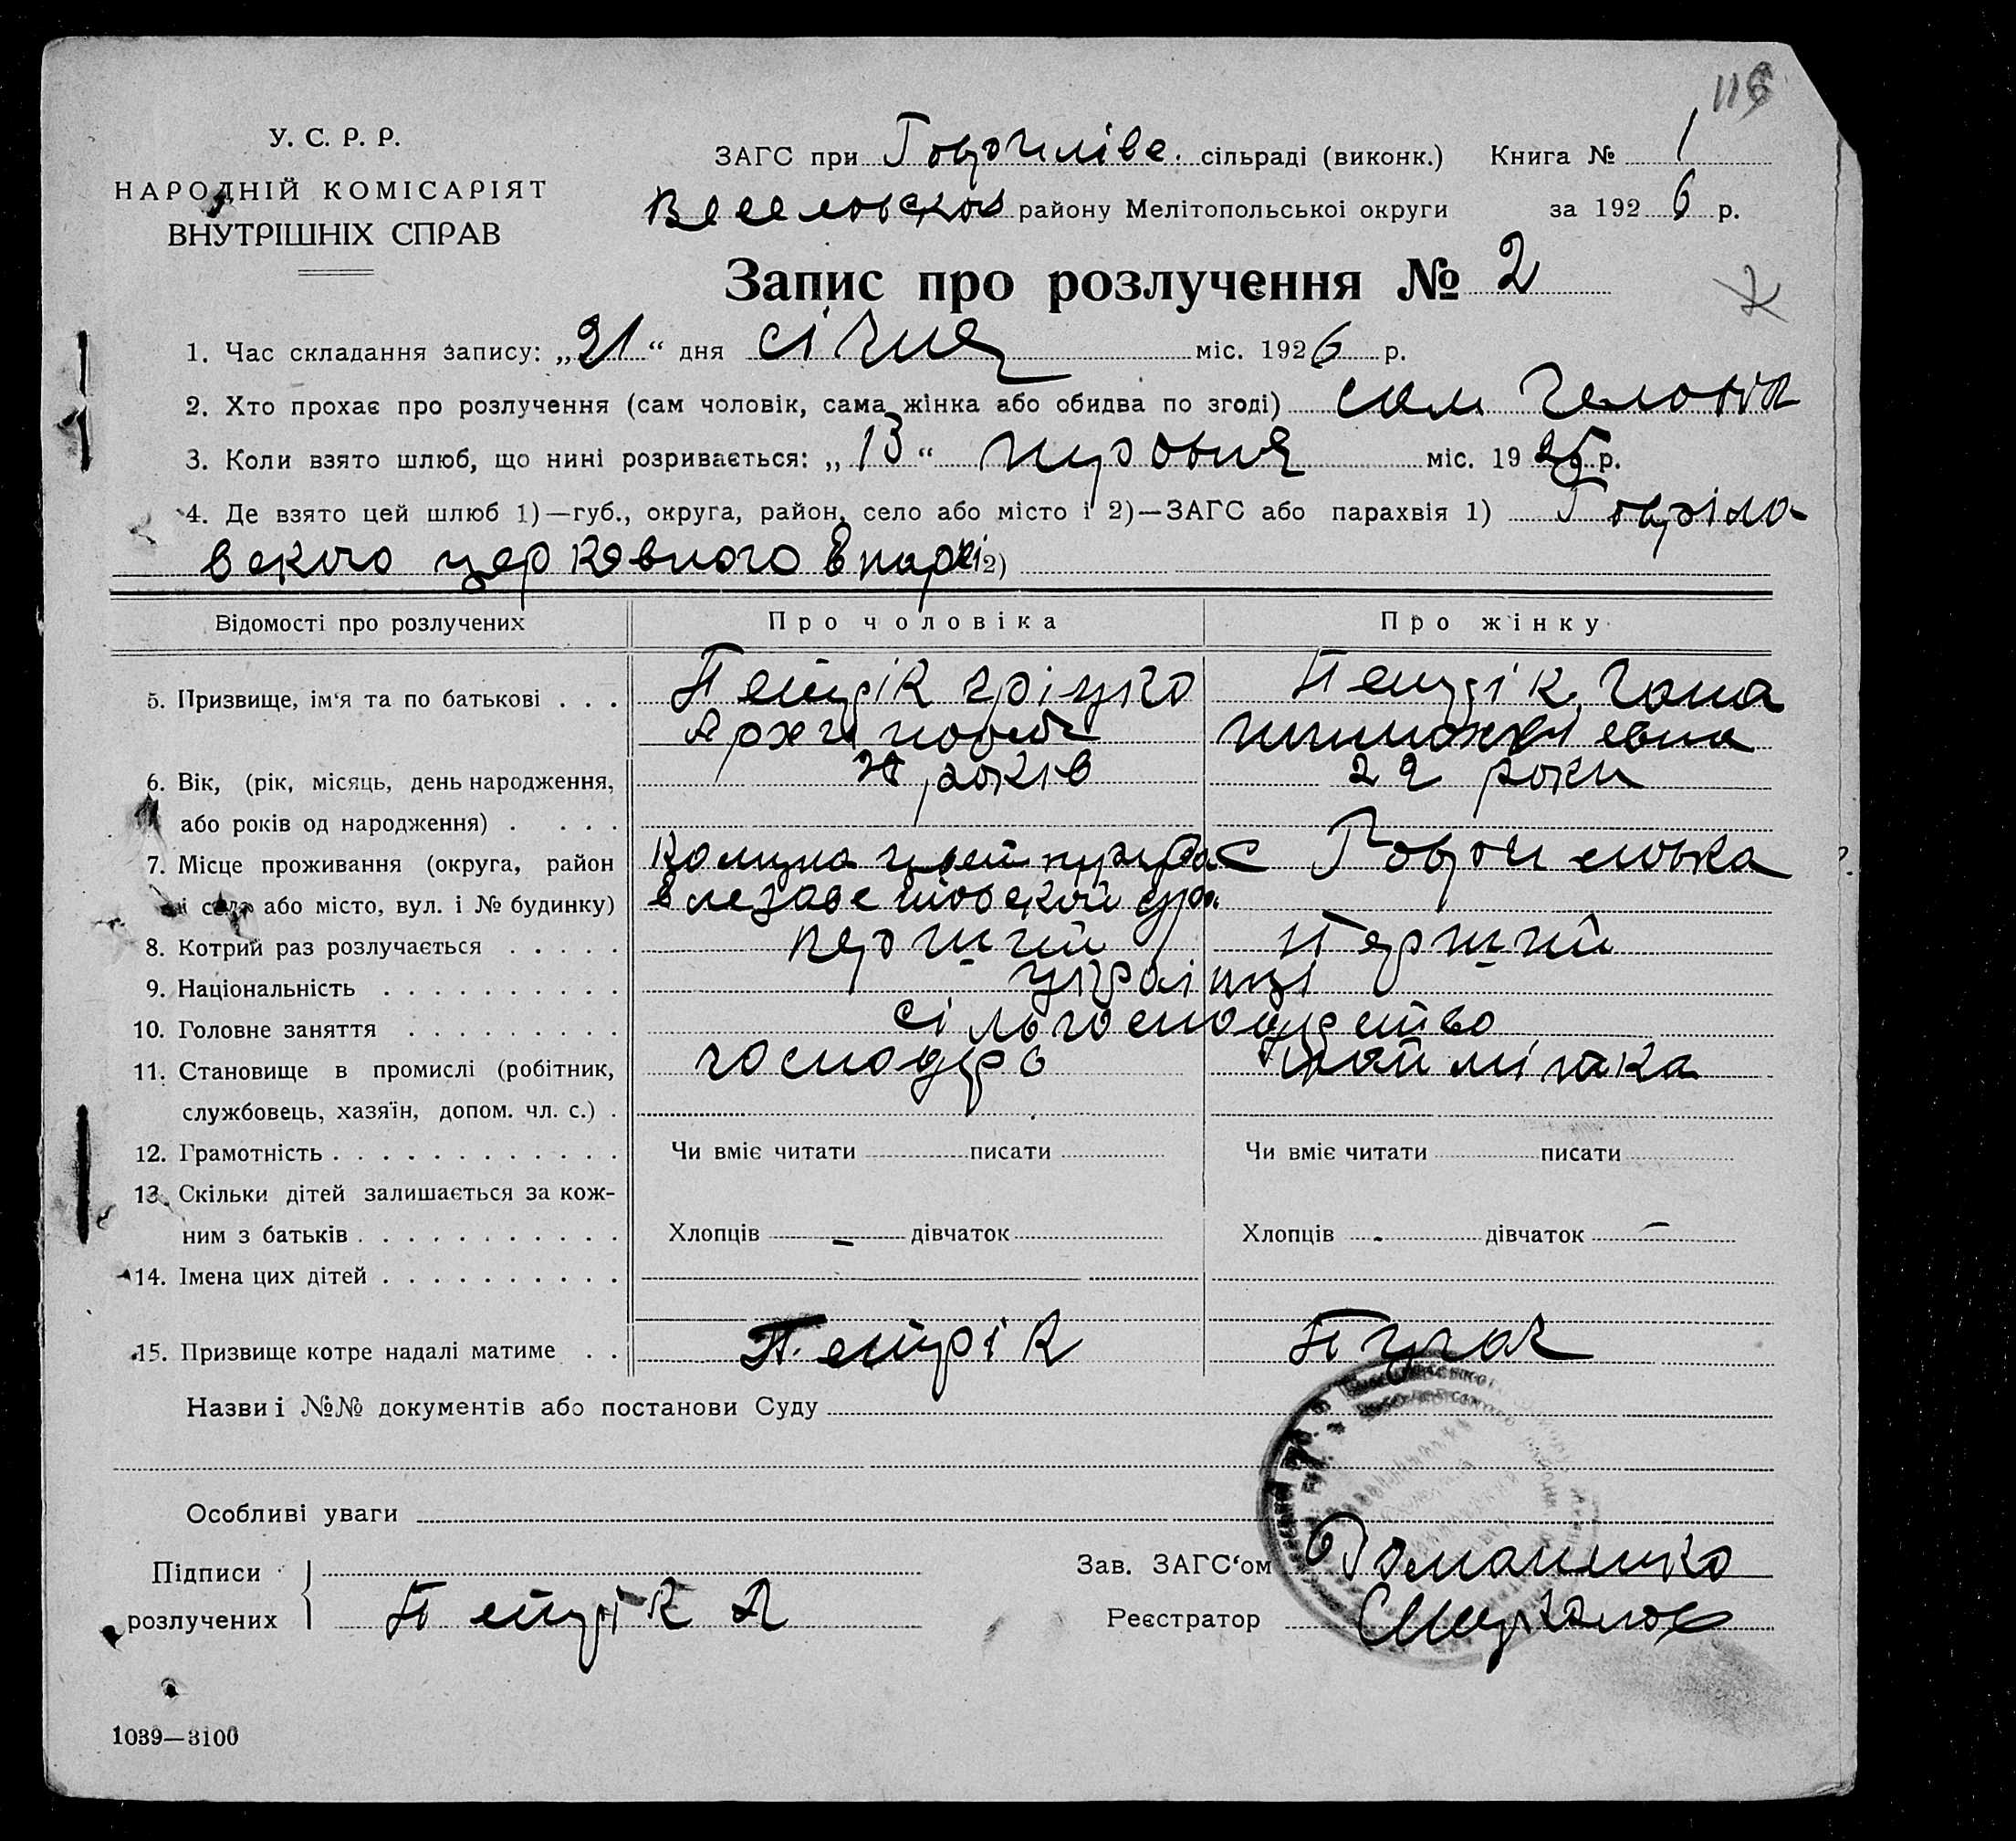 116
У. С. Р. Р.
НАРОДНІЙ КОМІСАРІЯТ
ВНУТРІШНІХ СПРАВ
ЗАГС при Гаврилівс. сільраді (виконк.) Книга № 1
району Мелітопольської округи за 1926 р.
Запис про розлучення № 2
1. Час складання запису: „21“ дня січня міс. 1926 р.
2. Хто прохає про розлучення (сам чоловік, сама жінка або обидва по згоді) сам
3. Коли взято шлюб, що нині розривається: „13“ міс. 1925 р.
4. Де взято цей шлюб 1)—губ., округа, район, село або місто і 2)—ЗАГС або парахвія 1) Гавріло-
вского церковного 2)
Відомості про розлучених Про чоловіка Про жінку
5. Призвище, ім‘я та по батькові . . . Петрік Гріцко Петрік Гана
6. Вік, (рік, місяць, день народження, років 22 роки
або років од народження) . . . .
7. Місце проживання (округа, район
і село або місто, вул. і № будинку)
8. Котрий раз розлучається . . . . . перший Перший
9. Національність . . . . . . . . . . українці
10. Головне заняття . . . . . . . . .
11. Становище в промислі (робітник, господар наймічка
службовець, хазяїн, допом. чл. с.) .
12. Грамотність . . . . . . . . . . . . Чи вміє читати писати Чи вміє читати писати
13. Скільки дітей залишається за кож-
ним з батьків . . . . . . . . . . . Хлопців – дівчаток Хлопців - дівчаток –
14. Імена цих дітей . . . . . . . . . .
15. Призвище котре надалі матиме . . Петрік Пугач
Назви і №№ документів або постанови Суду
Особливі уваги
Підписи
розлучених Петрік
Зав. ЗАГС‘ом Романенко
Реєстратор
1039—3100